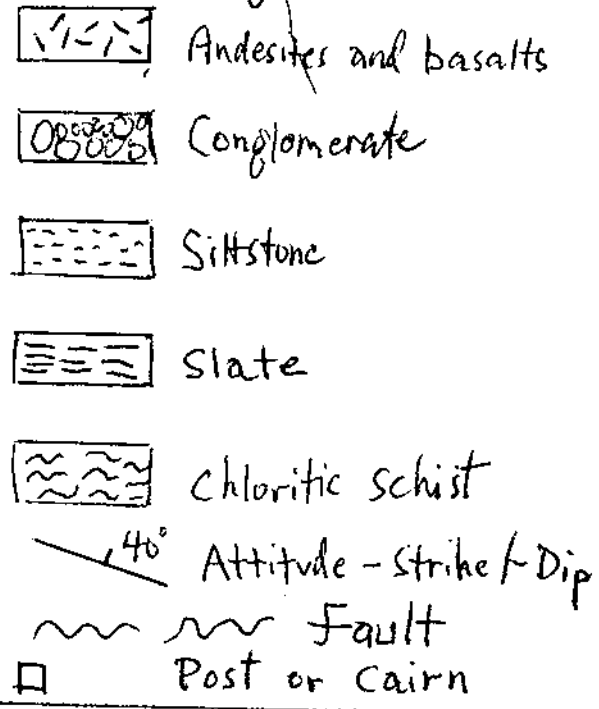 Andesites and basalts
Conglomerate
Siltstone
Slate
Chloritic Schist
40° Attitude - Strike / Dip
Fault
Post or Cairn